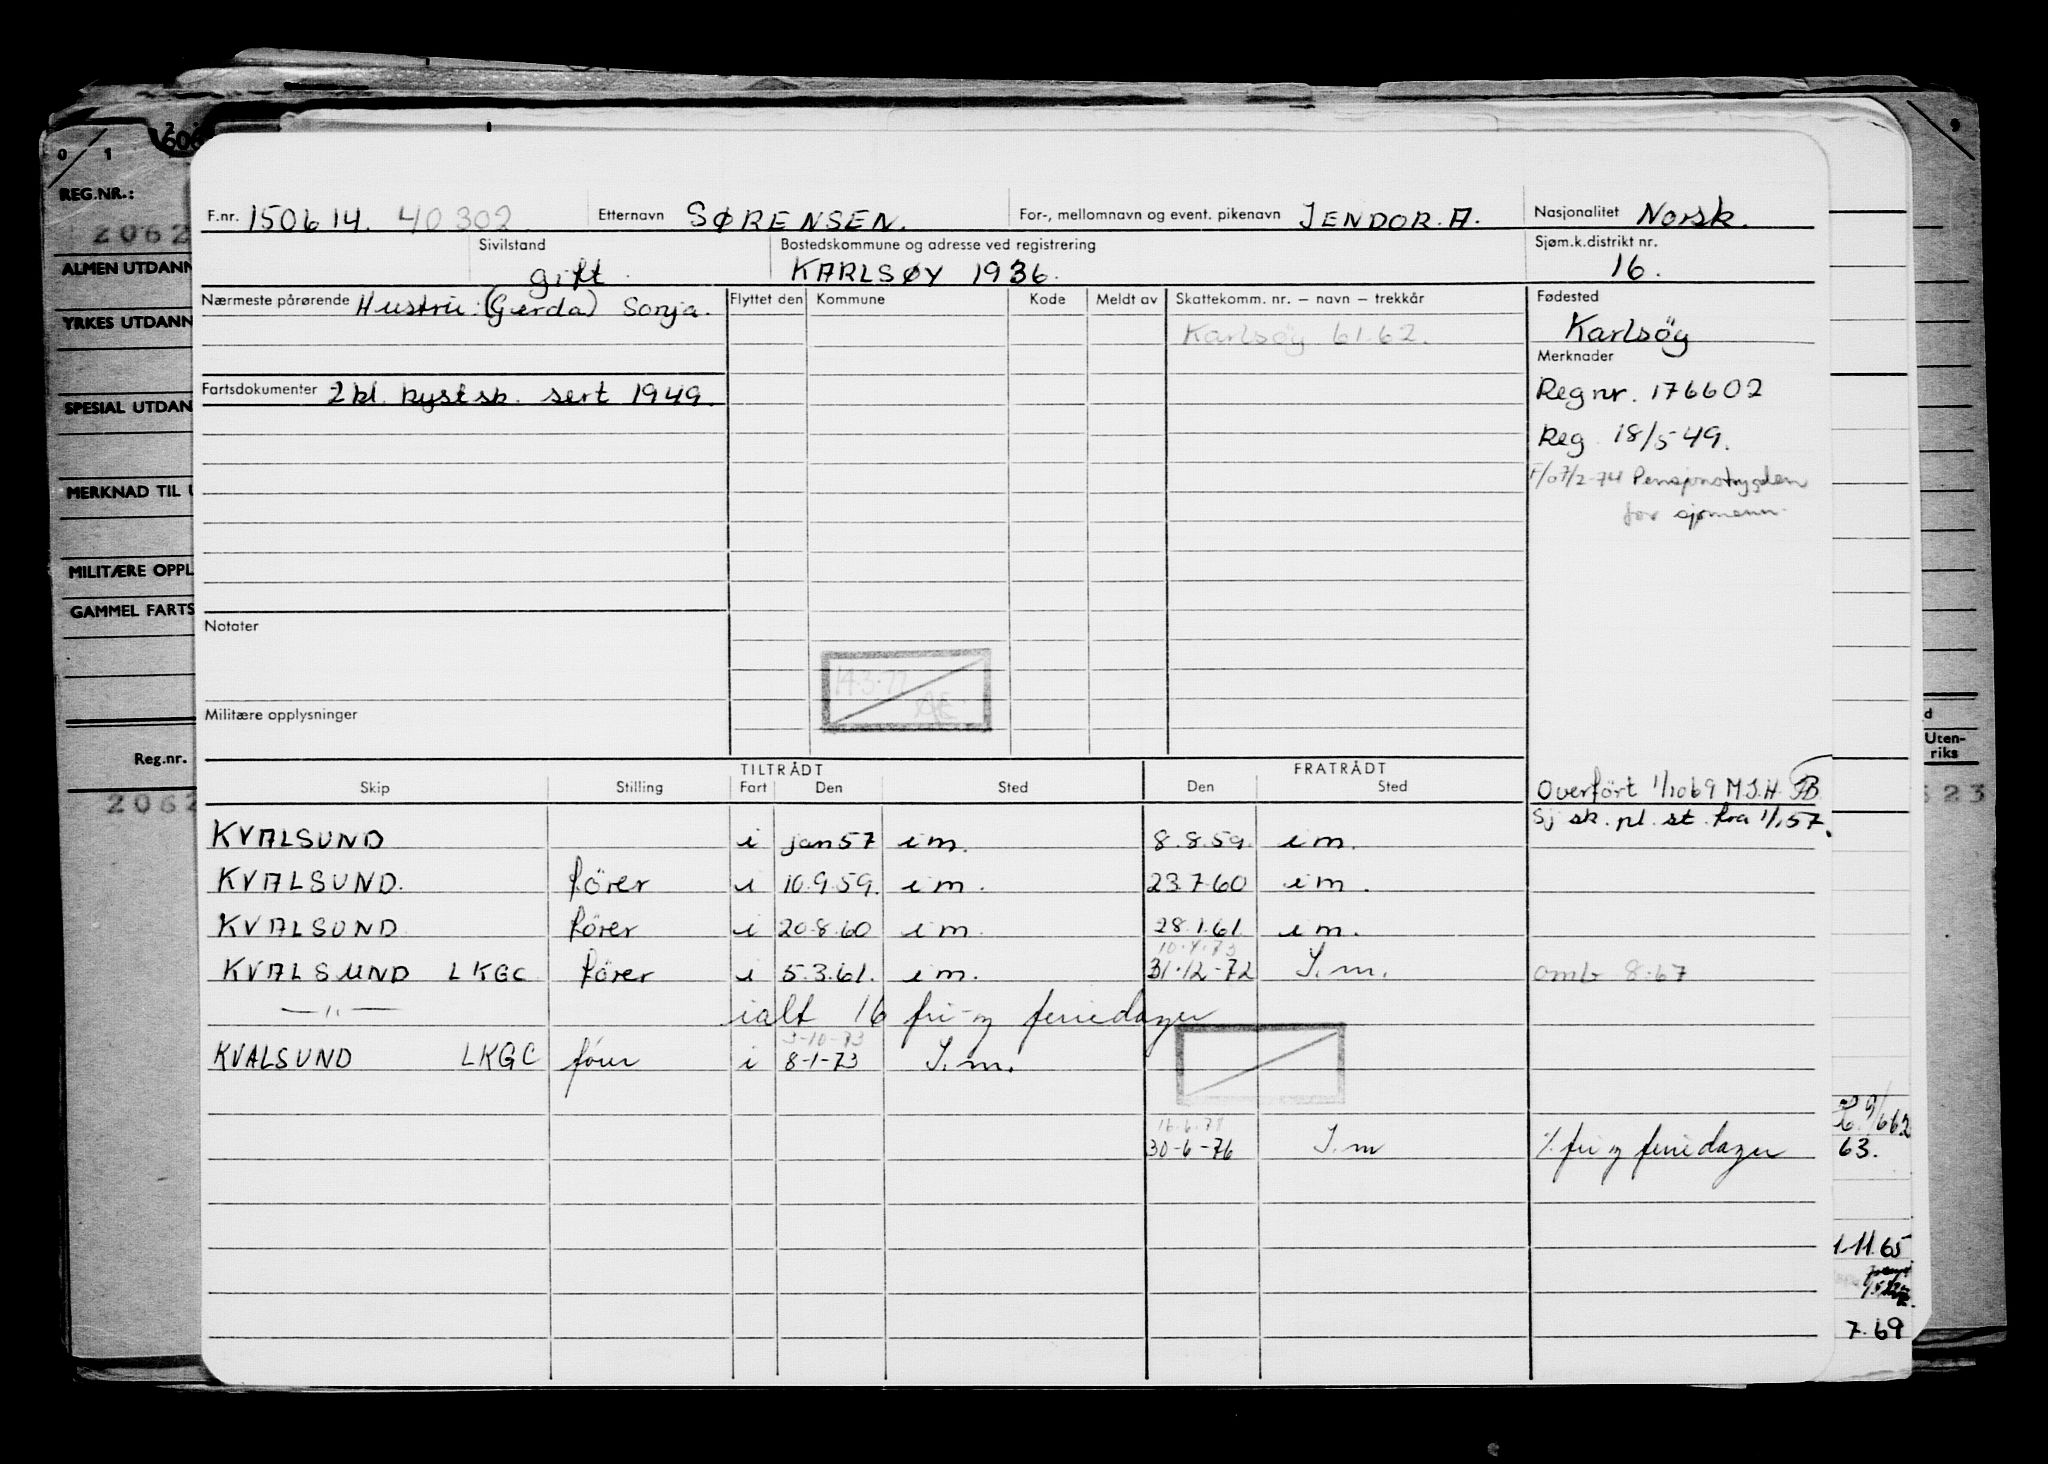 REG.NR.:
2062
ALMEN UTDANN
YRKES UTDANN
SPESIAL UTDAN
MERKNAD TIL U
MILITÆRE OPPL
GAMMEL FARTS
Reg.nr.
2062
F.nr. 150614. 40302 Etternavn SØRENSEN. For-, mellomnavn og event. pikenavn JENDOR. A. Nasjonalitet Norsk.
Sivilstand gift. Bostedskommune og adresse ved registrering KARLSØY 1936. Sjøm.k.distrikt nr. 16.
Nærmeste pårørende Hustru: (Gerda) Sonja. Flyttet den Kommune Kode Meldt av Skattekomm. nr. — navn — trekkår Fødested
Karlsöy 61.62. Karlsöy
Merknader
Fartsdokumenter 2 kl. kystsk. sert 1949. Reg nr. 176602
Reg 18/5-49.
F/07/2-74 Pensjonstrygden
for sjømenn.
Notater
14.3.77
Militære opplysninger
TILTRÅDT FRATRÅDT
Skip Stilling Fart Den Sted Den Sted
Overført 1/1069 M.J.H. FB
Sj sk. pl. st. fra 1/1 57.
KVALSUND i jan 57 i m. 8.8.59 i m.
KVALSUND. förer i 10.9.59. i m. 23.7.60 i m.
KVALSUND förer i 20.8.60 i m. 28.1.61 i m.
10.4.73
KVALSUND LKGC förer i 5.3.61. i m. 31.12-72 I. m. omb 8.67
—〃— ialt 16 fri- og feriedager
3-10-73
KVALSUND LKGC förer i 8-1-73 I. m.
16.6.78
30-6-76 I. m ./. fri og feriedager
Uten-
riks
523
63.
1.11.65
7.69